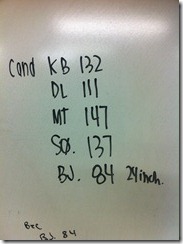 Cond KB 132
DL 111
MT 147
SQ. 137
BJ. 84 24inch.
Bec
BJ. 84